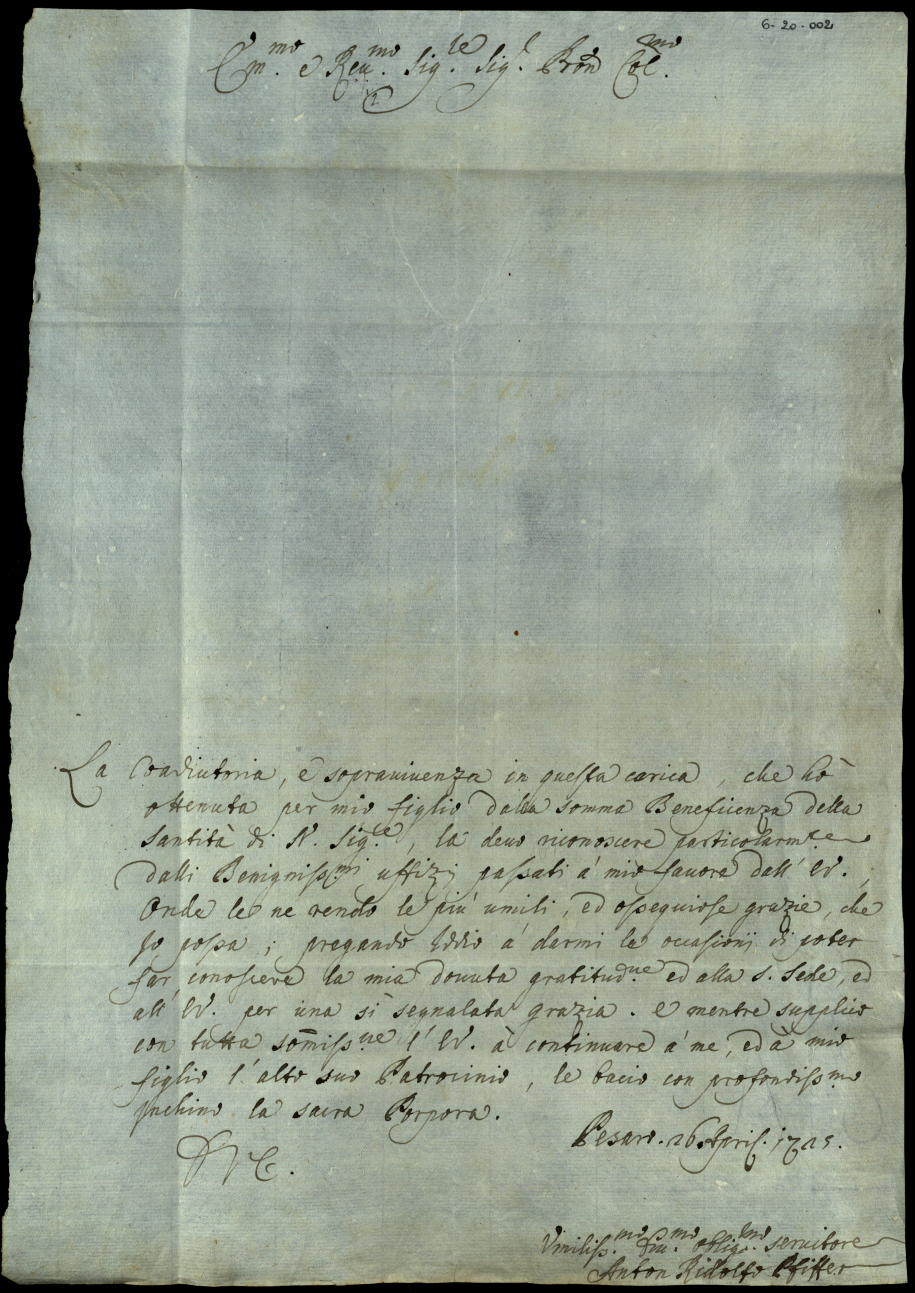 6-20-002
Em.mo e Reu.mo Sig.re Sig.r Pron Col.mo
La Coadiutoria, e sopravivenza in questa carica, che hò
ottenuta per mio figlio dalla somma Beneficenza della
Santità di N. Sig.re, la devo riconoscere particolarm.te
dalli Benigniss.mi uffizj passati a' mio favore dall' EV.;
Onde le ne rendo le più umili, ed ossequiose grazie, che
Jo possa; pregando Iddio a' darmi le occasioni di poter
far conoscere la mia dovuta gratitud.ne ed alla S. Sede, ed
all' EV. per una sì segnalata grazia. e mentre supplico
con tutta somiss.ne l' EV. à continuare a' me, ed à mio
figlio l' alto suo Patrocinio, le bacio con profondiss.mo
Jnchino la sacra Porpora.
Pesaro. 26 April. 1725.
DVE.
Vmiliss.mo Diu.mo oblig.mo seruitore
Anton Ridolfo Pfiffer